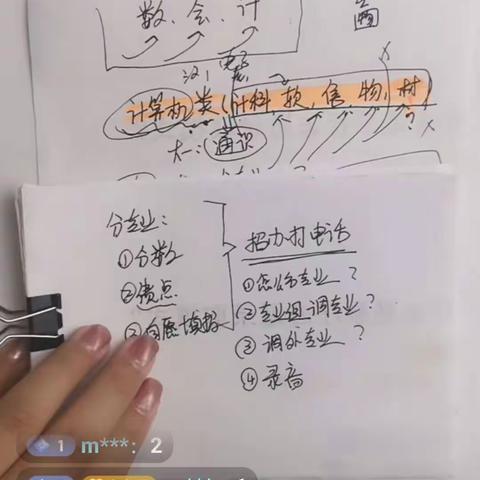 数、会、计
计算机类(计科,软,信,物,材)
大一:通识
分专业:
①分数
②绩点
③自愿填报
招办打电话
①怎么分专业?
②专业组调专业?
③调外专业?
④录音
1 m***: 2